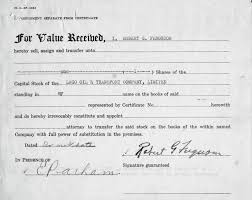 ASSIGNMENT SEPARATE FROM CERTIFICATE
For Value Received, I, ROBERT G. FERGUSON
hereby sell, assign and transfer unto
Shares of the
Capital Stock of the LAGO OIL & TRANSPORT COMPANY, LIMITED
standing in my name on the books of said
represented by Certificate No. herewith
and do hereby irrevocably constitute and appoint
attorney to transfer the said stock on the books of the within named
Company with full power of substitution in the premises.
Dated
Robert G Ferguson
IN PRESENCE OF
Signature guaranteed